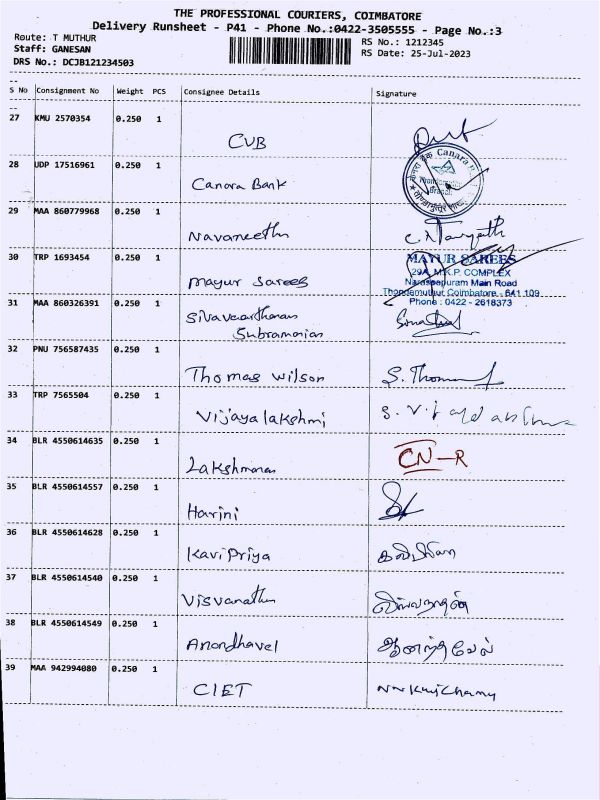 THE PROFESSIONAL COURIERS, COIMBATORE
Delivery Runsheet - P41 - Phone No.:0422-3505555 - Page No.:3
Route: T MUTHUR RS No.: 1212345
Staff: GANESAN RS Date: 25-Jul-2023
DRS No.: DCJB121234503
S No Consignment No Weight PCS Consignee Details Signature
27 KMU 2570354 0.250 1 CUB
28 UDP 17516961 0.250 1 Canara Bank Canara
Branch
29 MAA 860779968 0.250 1 Navaneethn
30 TRP 1693454 0.250 1 Mayur Sarees
MAYUR SAREES
29A, M.K.P. COMPLEX
Narasepuram Main Road
Thondamuthur, Coimbatore - 641 109
Phone : 0422 - 2618373
31 MAA 860326391 0.250 1
Subramanian
32 PNU 756587435 0.250 1 Thomas Wilson S. Thomas
33 TRP 7565504 0.250 1 Vijayalakshmi
34 BLR 4550614635 0.250 1 Lakshmanan CN-R
35 BLR 4550614557 0.250 1 Harini
36 BLR 4550614628 0.250 1 KaviPriya
37 BLR 4550614540 0.250 1 Visvanathn விஸ்வநாதன்
38 BLR 4550614549 0.250 1 Anandhavel ஆனந்தவேல்
39 MAA 942994080 0.250 1 CIET